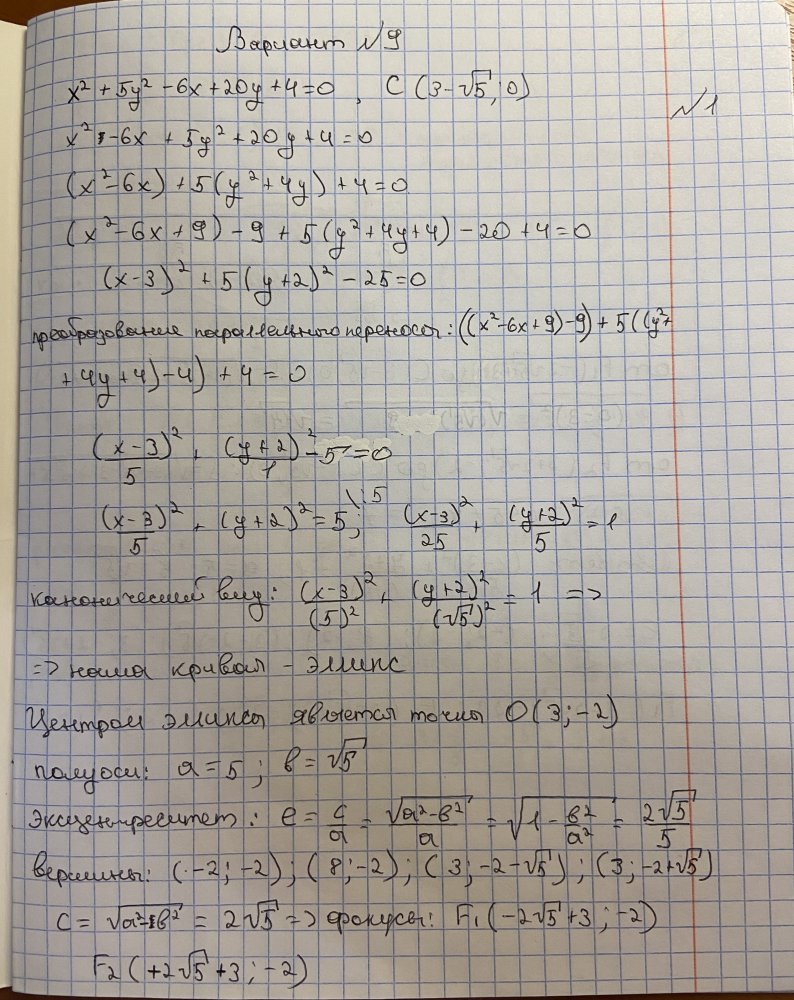 Вариант №9
x² + 5y² - 6x + 20y + 4 = 0, C (3-√5; 0)
№1
x² - 6x + 5y² + 20y + 4 = 0
(x² - 6x) + 5(y² + 4y) + 4 = 0
(x² - 6x + 9) - 9 + 5(y² + 4y + 4) - 20 + 4 = 0
(x-3)² + 5(y+2)² - 25 = 0
преобразование параллельного переноса: ((x² - 6x + 9) - 9) + 5((y² +
+ 4y + 4) - 4) + 4 = 0
(x-3)²/5 + (y+2)²/1 - 5 = 0
(x-3)²/5 + (y+2)² = 5 | :5; (x-3)²/25 + (y+2)²/5 = 1
канонический вид: (x-3)²/(5)² + (y+2)²/(√5)² = 1 =>
=> наша кривая - элипс
Центром элипса является точка O(3; -2)
полуоси: a = 5; b = √5
Эксцентреситет: e = c/a = √(a²-b²)/a = √(1 - b²/a²) = 2√5/5
вершины: (-2; -2); (8; -2); (3; -2-√5); (3; -2+√5)
C = √(a²-b²) = 2√5 => фокусы: F₁(-2√5+3; -2)
F₂(+2√5+3; -2)